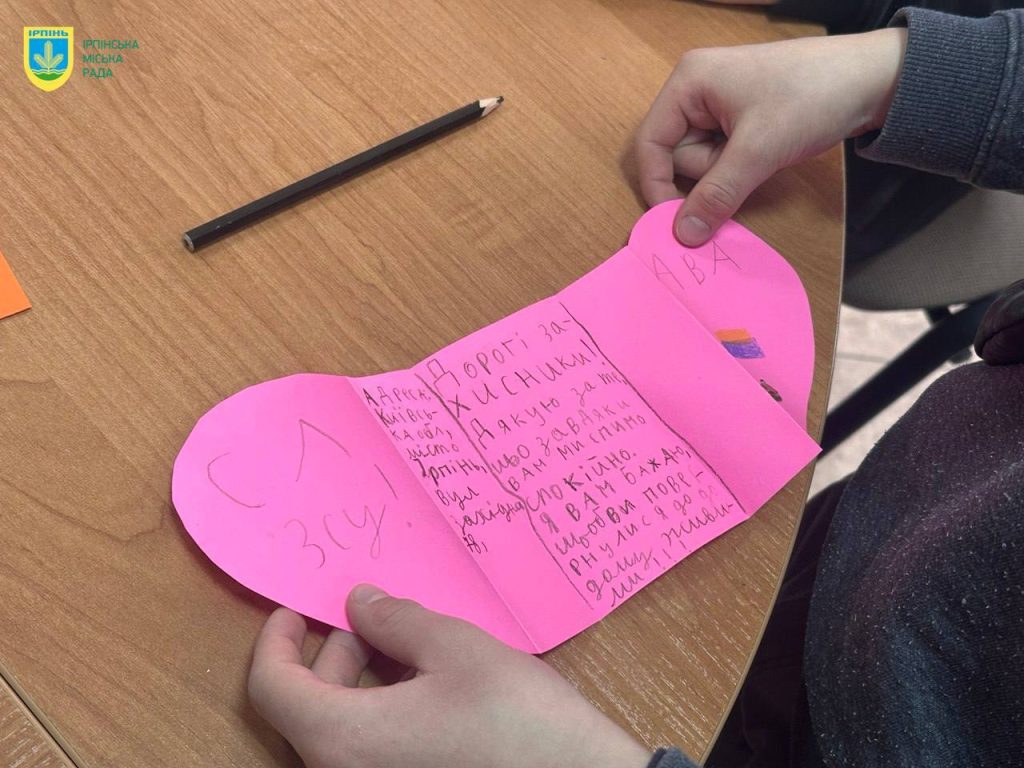 ІРПІНЬ
ІРПІНСЬКА
МІСЬКА
РАДА
СЛ
АВА
ЗСУ
Адреса:
Київсь-
ка обл,
місто
Ірпінь,
вул
західна
Дорогі за-
хисники!
Дякую за те,
що завдяки
вам ми спимо
спокійно.
Я вам бажаю,
щоб ви пове-
рнулися до до
дому живи-
ми!!!